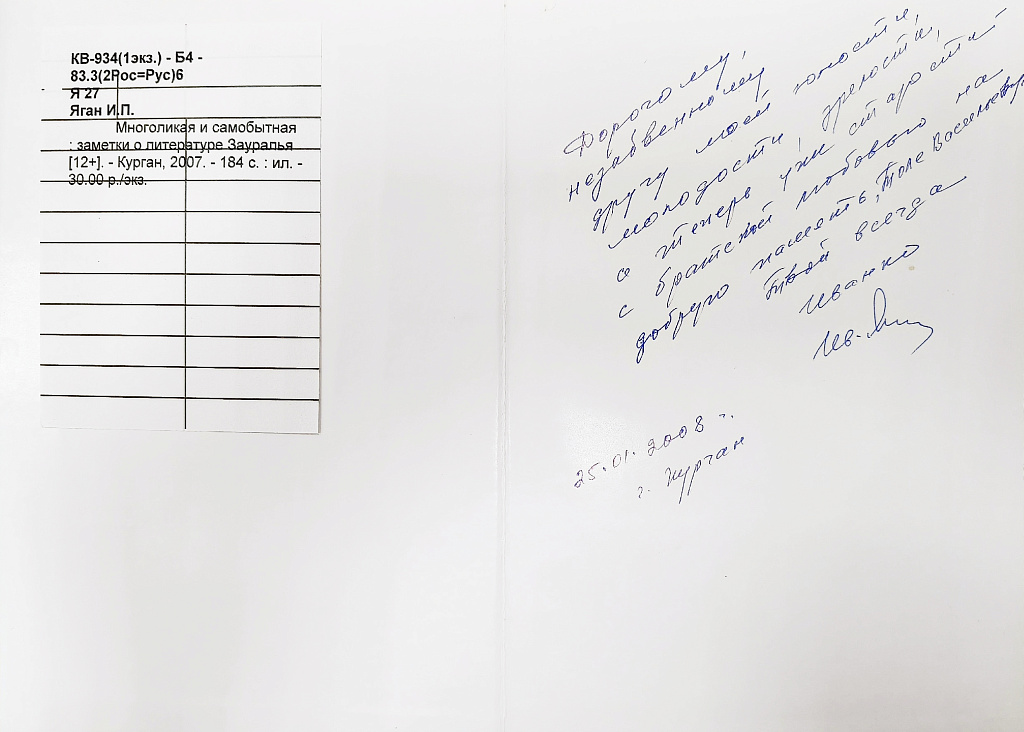 КВ-934(1экз.) - Б4 -
83.3(2Рос=Рус)6
Я 27
Яган И.П.
Многоликая и самобытная
: заметки о литературе Зауралья
[12+]. - Курган, 2007. - 184 с. : ил. -
30.00 р./экз.
Дорогому,
незабвенному
другу моей юности,
молодости, зрелости,
а теперь уже старости
с братской любовью на
добрую память, Толе Васильеву
Твой всегда
Иванко
Ив. Яган
25.01.2008 г.
г. Курган